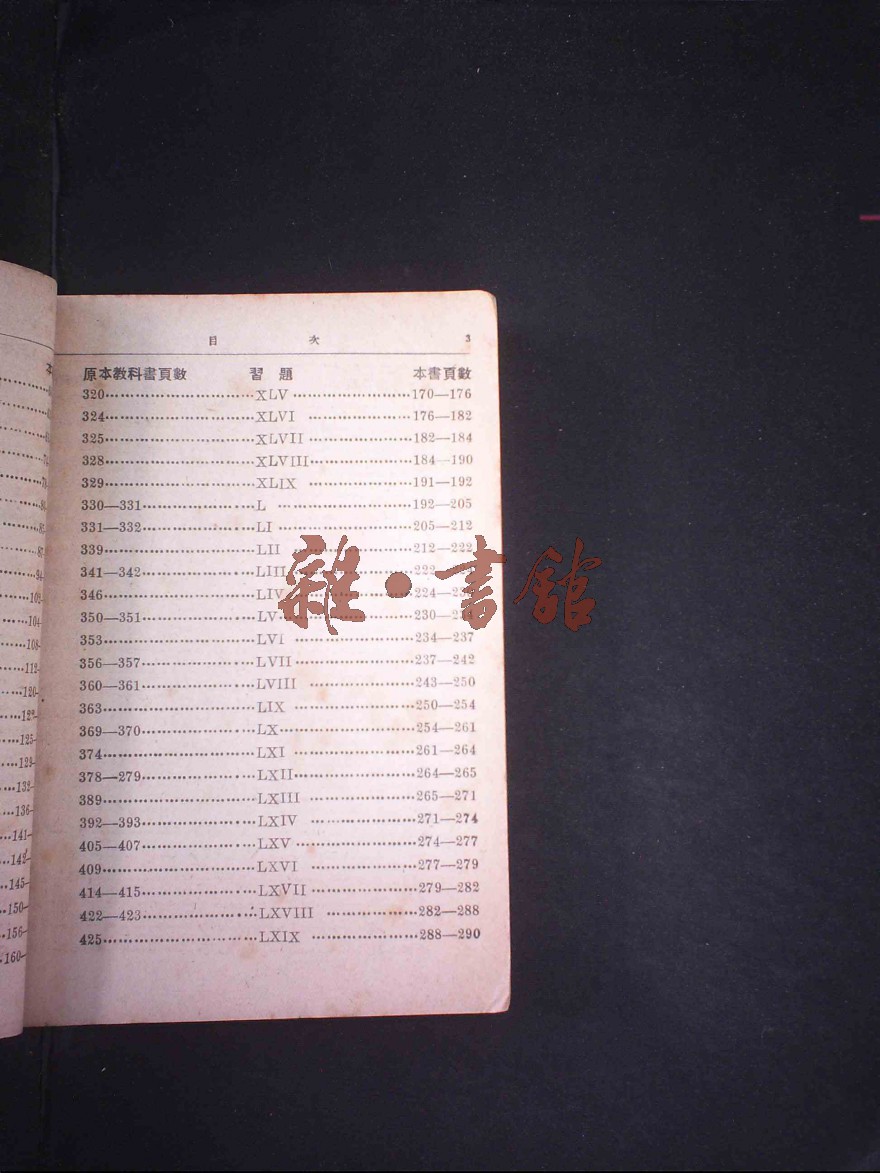 目 次 3
原本教科書頁數 習題 本書頁數
320 XLV 170—176
324 XLVI 176—182
325 XLVII 182—184
328 XLVIII 184—190
329 XLIX 191—192
330—331 L 192—205
331—332 LI 205—212
339 LII 212—222
341—342 LIII 222
346 LIV 224
350—351 LV 230—234
353 LVI 234—237
356—357 LVII 237—242
360—361 LVIII 243—250
363 LIX 250—254
369—370 LX 254—261
374 LXI 261—264
378—279 LXII 264—265
389 LXIII 265—271
392—393 LXIV 271—274
405—407 LXV 274—277
409 LXVI 277—279
414—415 LXVII 279—282
422—423 LXVIII 282—288
425 LXIX 288—290
雜·書館
102
104
108
112
120
125
132
136
141
145
150
156
160